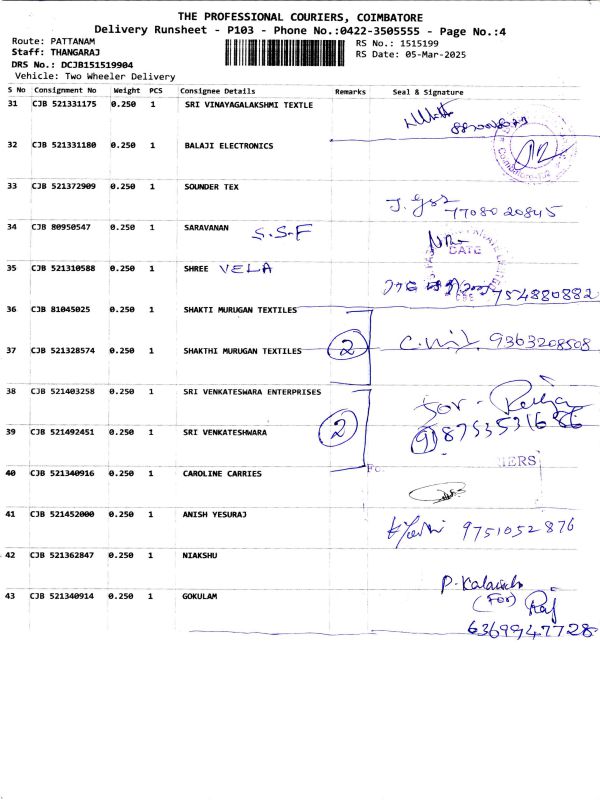 THE PROFESSIONAL COURIERS, COIMBATORE
Delivery Runsheet - P103 - Phone No.:0422-3505555 - Page No.:4
Route: PATTANAM
RS No.: 1515199
Staff: THANGARAJ
RS Date: 05-Mar-2025
DRS No.: DCJB151519904
Vehicle: Two Wheeler Delivery
S No Consignment No Weight PCS Consignee Details Remarks Seal & Signature
31 CJB 521331175 0.250 1 SRI VINAYAGALAKSHMI TEXTLE
32 CJB 521331180 0.250 1 BALAJI ELECTRONICS
33 CJB 521372909 0.250 1 SOUNDER TEX
7708020845
34 CJB 80950547 0.250 1 SARAVANAN S.S.F
DATE
35 CJB 521310588 0.250 1 SHREE VELA
7754880882
36 CJB 81045025 0.250 1 SHAKTI MURUGAN TEXTILES
2 9363208508
37 CJB 521328574 0.250 1 SHAKTHI MURUGAN TEXTILES
38 CJB 521403258 0.250 1 SRI VENKATESWARA ENTERPRISES
for -
2
39 CJB 521492451 0.250 1 SRI VENKATESHWARA
40 CJB 521340916 0.250 1 CAROLINE CARRIES
41 CJB 521452000 0.250 1 ANISH YESURAJ
9751052876
42 CJB 521362847 0.250 1 NIAKSHU
(For)
43 CJB 521340914 0.250 1 GOKULAM
Raj
6369947728